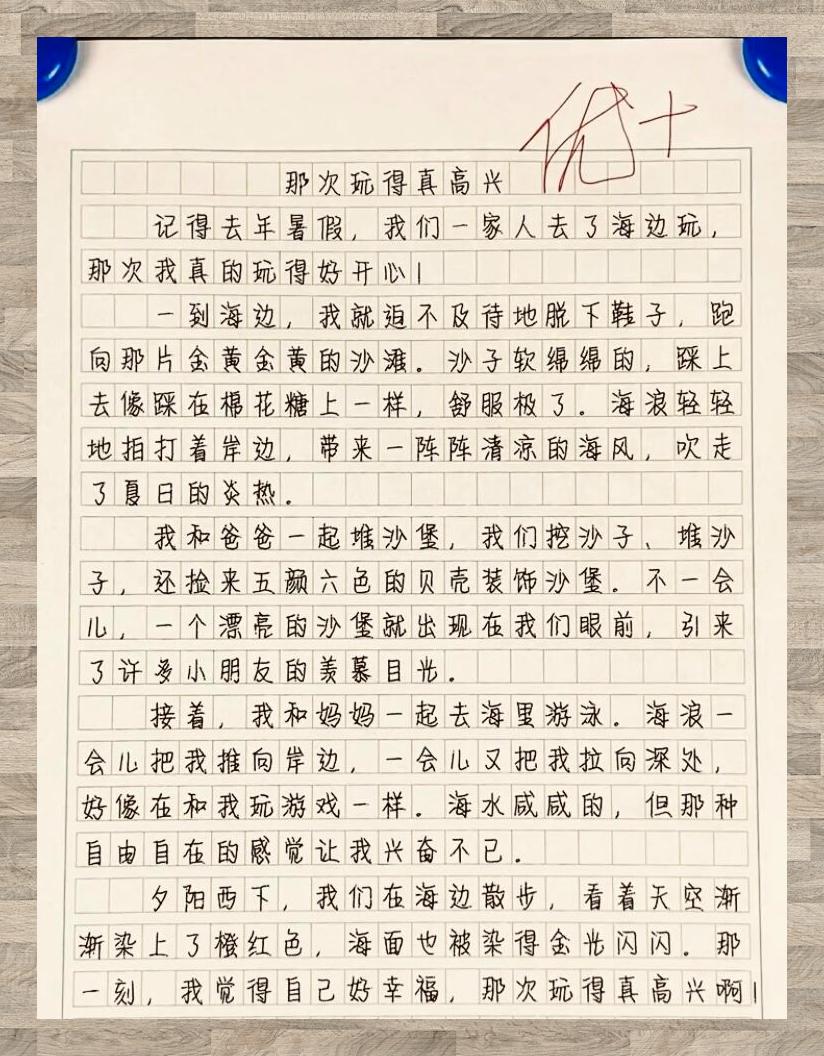 优+
那次玩得真高兴
记得去年暑假，我们一家人去了海边玩，
那次我真的玩得好开心！
一到海边，我就迫不及待地脱下鞋子，跑
向那片金黄金黄的沙滩。沙子软绵绵的，踩上
去像踩在棉花糖上一样，舒服极了。海浪轻轻
地拍打着岸边，带来一阵阵清凉的海风，吹走
了夏日的炎热。
我和爸爸一起堆沙堡，我们挖沙子、堆沙
子，还捡来五颜六色的贝壳装饰沙堡。不一会
儿，一个漂亮的沙堡就出现在我们眼前，引来
了许多小朋友的羡慕目光。
接着，我和妈妈一起去海里游泳。海浪一
会儿把我推向岸边，一会儿又把我拉向深处，
好像在和我玩游戏一样。海水咸咸的，但那种
自由自在的感觉让我兴奋不已。
夕阳西下，我们在海边散步，看着天空渐
渐染上了橙红色，海面也被染得金光闪闪。那
一刻，我觉得自己好幸福，那次玩得真高兴啊！